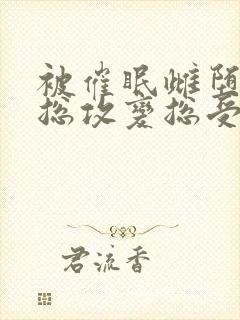 被催眠雌堕
总攻变总受
君流香